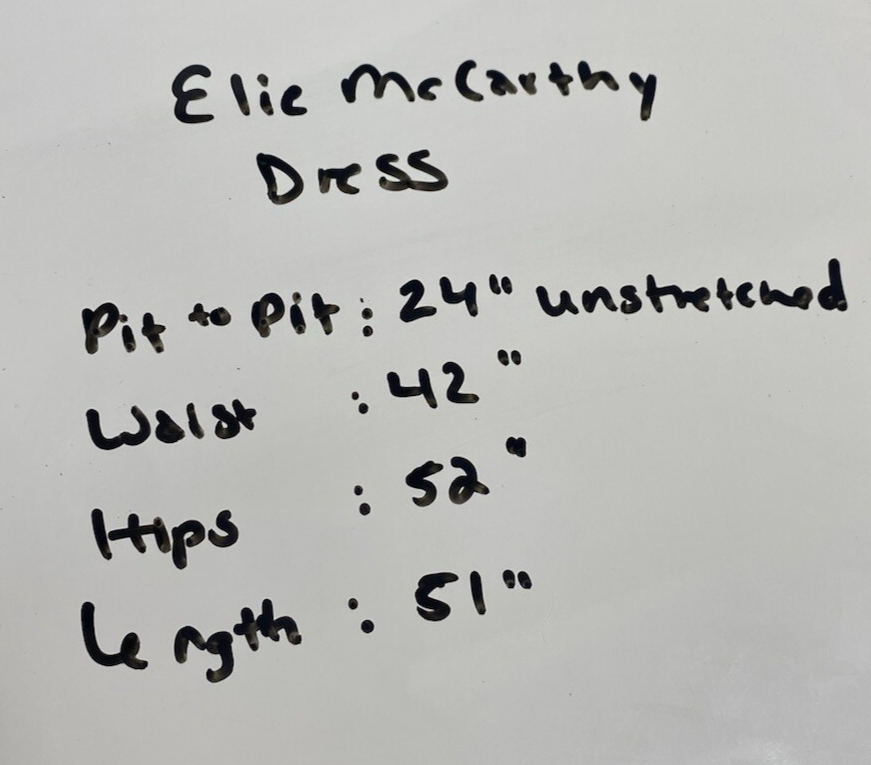 Elie McCarthy
Dress
Pit to Pit : 24" unstretched
Waist : 42"
Hips : 52"
Length : 51"